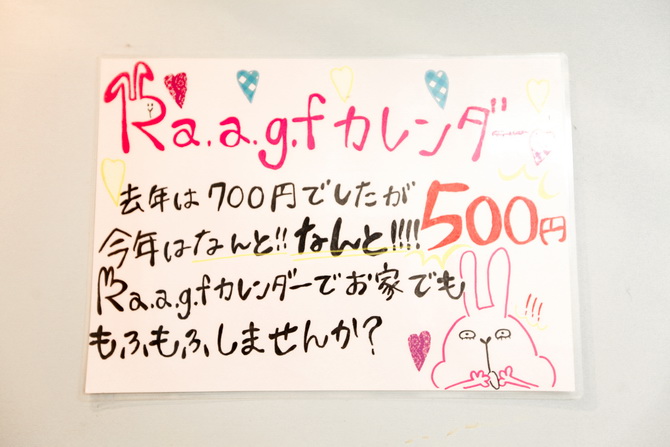 Ra.a.g.fカレンダー
去年は700円でしたが
今年はなんと!!なんと!!!!500円
Ra.a.g.fカレンダーでお家でも
もふもふしませんか?
!!!